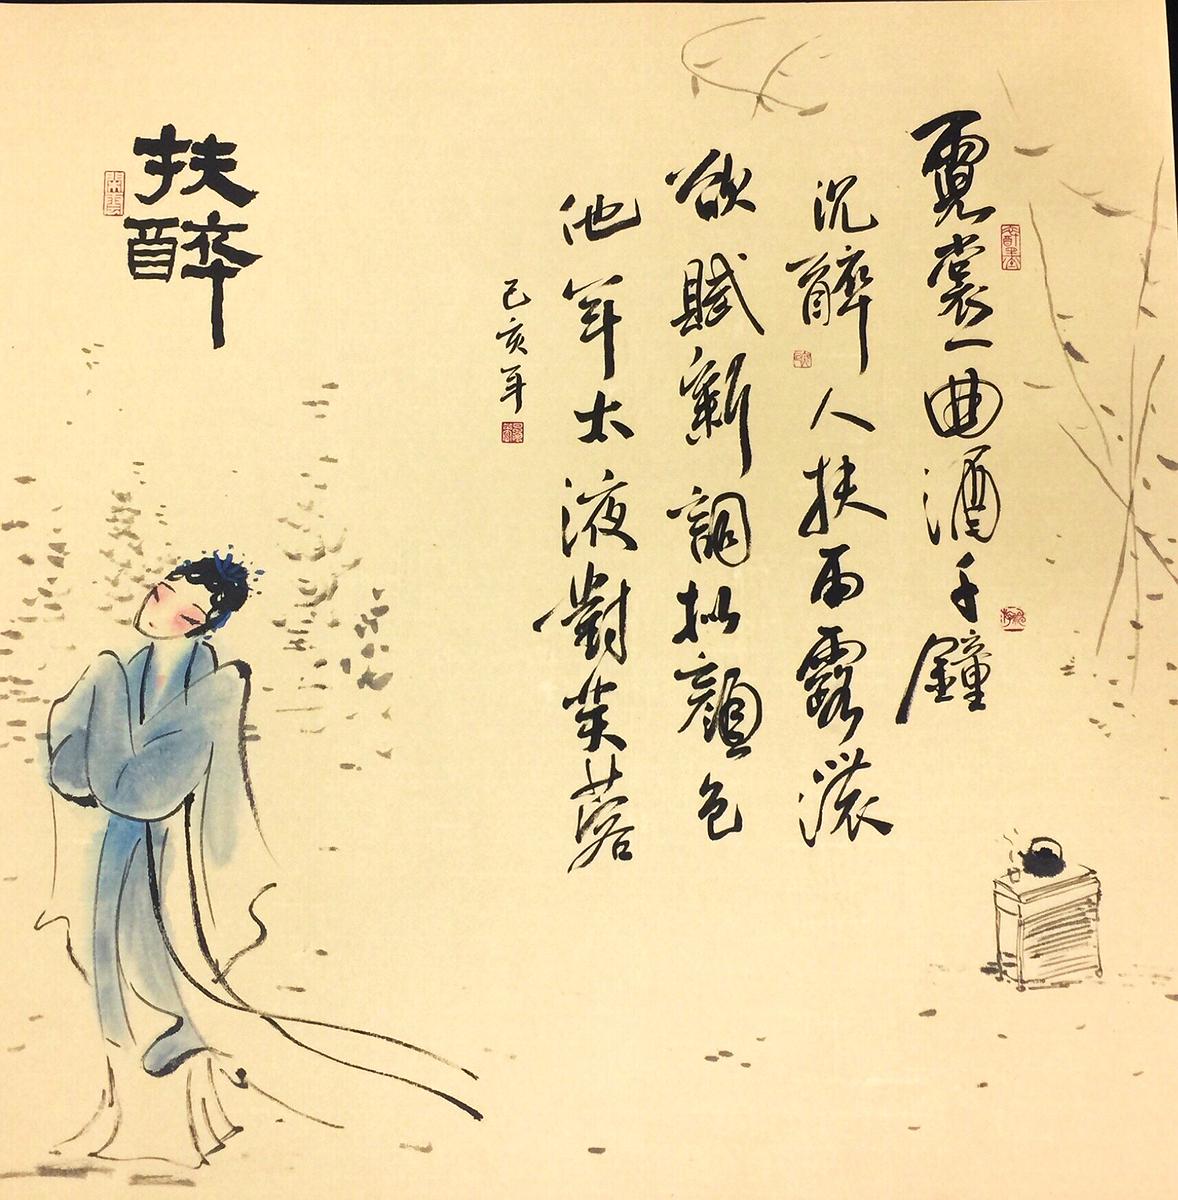 霓裳一曲酒千鐘
沉醉人扶雨露濃
欲賦新詞拟顏色
他年太液對芙蓉
己亥年
扶醉